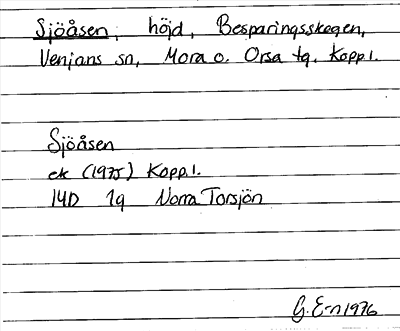 Sjöåsen, höjd, Besparingsskogen,
Venjans sn, Mora o. Orsa tg. Kopp l.
Sjöåsen
ek (1975) Kopp.l.
14D 1g Norra Torsjön
G. E-n 1976